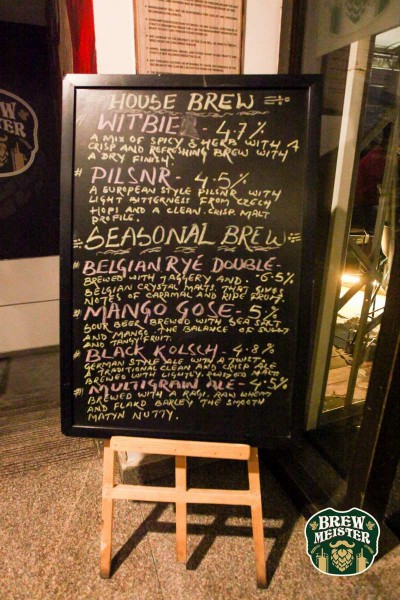 HOUSE BREW
WITBIE - 4.7%
A MIX OF SPICY & HERB WITH A
CRISP AND REFRESHING BREW WITH
A DRY FINISH.
# PILSNR - 4.5%
A EUROPEAN STYLE PILSNR WITH
LIGHT BITTERNESS FROM CZECH
HOPS AND A CLEAN. CRISP MALT
PROFILE.
SEASONAL BREW
# BELGIAN RYE DOUBLE - 6.5%
BREWED WITH JAGGERY AND.
BELGIAN CRYSTAL MALTS. THAT GIVES
NOTES OF CARAMAL AND RIPE FRUIT.
# MANGO GOSE - 5%
SOUR BEER BREWED WITH SEA SALT
AND MANGO. THE BALANCE OF SWEET
AND TANGY FRUIT.
# BLACK KOLSCH - 4.8%
GERMAN STYLE ALE WITH A TWIST.
A TRADITIONAL CLEAN AND CRISP ALE
BREWED WITH LIGHTLY
# MULTIGRAIN ALE - 4.5%
BREWED WITH A RAGI. RAW WHEAT
AND FLAKD BARLEY THE SMOOTH
MATYN NUTTY.
BREW
MEISTER
BREW
MEISTER